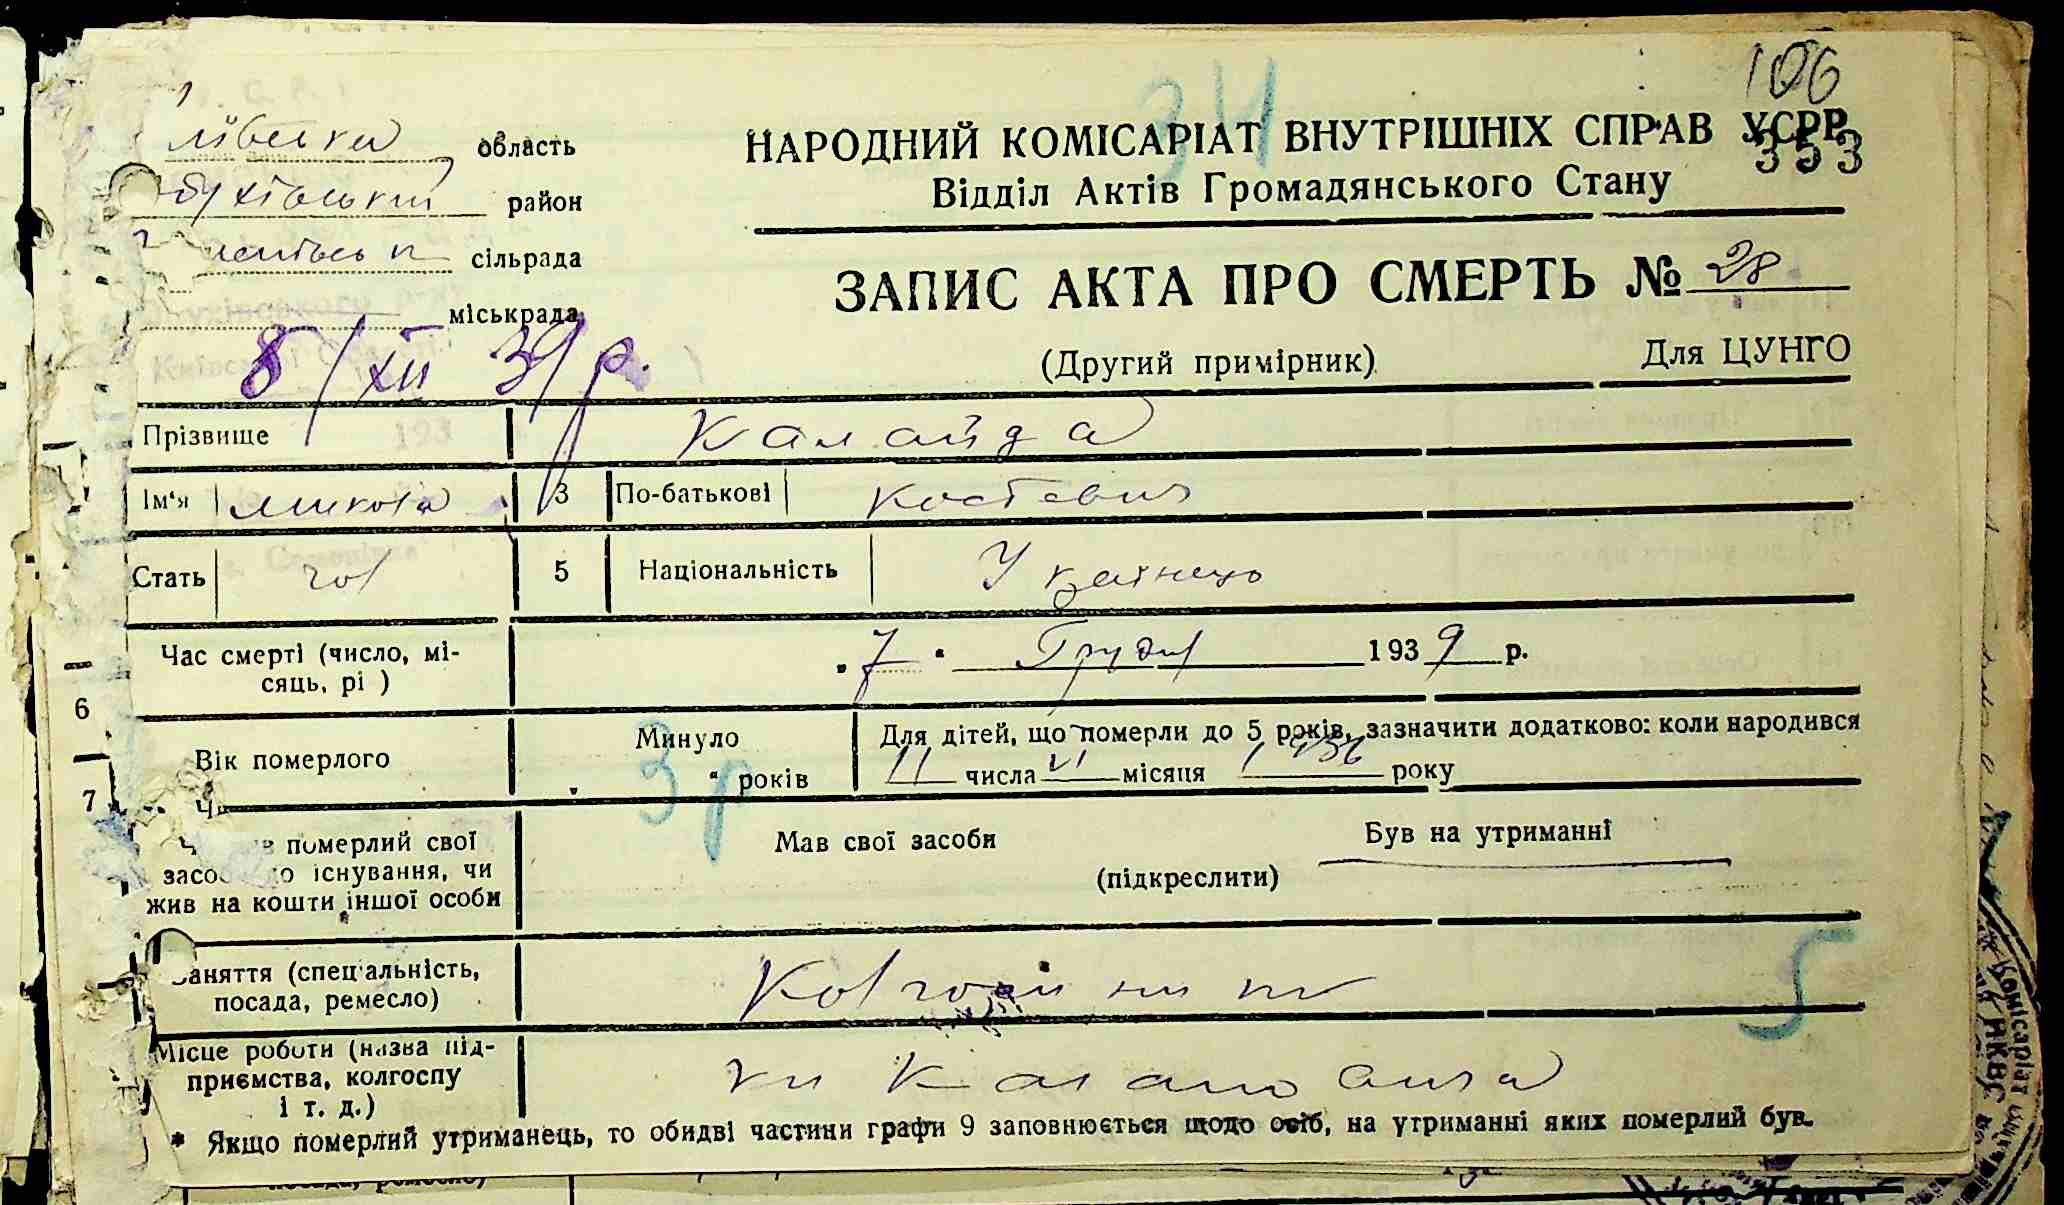 106
34
область
НАРОДНИЙ КОМІСАРІАТ ВНУТРІШНІХ СПРАВ УСРР
353
Відділ Актів Громадянського Стану
район
сільрада
ЗАПИС АКТА ПРО СМЕРТЬ № 28
міськрада
8/XII 39 р.
(Другий примірник)
Для ЦУНГО
Прізвище Калайда
Ім'я Микола 3 По-батькові Костевич
Стать чол 5 Національність Українець
Час смерті (число, мі-
сяць, рі )
„ 7 " Грудня 1939 р.
6
Вік померлого
Минуло
3 р років
Для дітей, що померли до 5 років, зазначити додатково: коли народився
11 числа VI місяця 1936 року
7
померлий свої
існування, чи
жив на кошти іншої особи
Мав свої засоби
Був на утриманні
(підкреслити)
аняття (спеціальність,
посада, ремесло)
Колгоспник
5
Місце роботи (назва під-
приємства, колгоспу
і т. д.)
* Якщо померлий утриманець, то обидві частини графи 9 заповнюється щодо осіб, на утриманні яких померлий був.